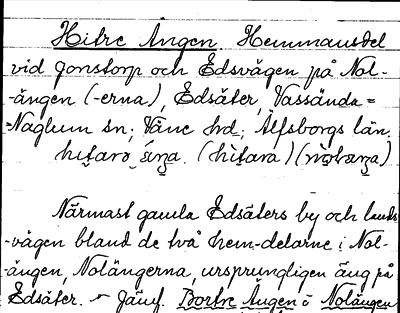 Hitre Ängen. Hemmansdel
vid Jonstorp och Edsvägen på Nol-
-ängen (-erna), Edsäter, Vassända=
=Naglum sn; Väne hd; Älfsborgs län.
Närmast gamla Edsäters by och lands-
-vägen bland de två hem-delarne i Nol-
-ängen, Nolängerna, ursprungligen äng på
Edsäter. - Jämf. Bortre Ängen o Nolängen